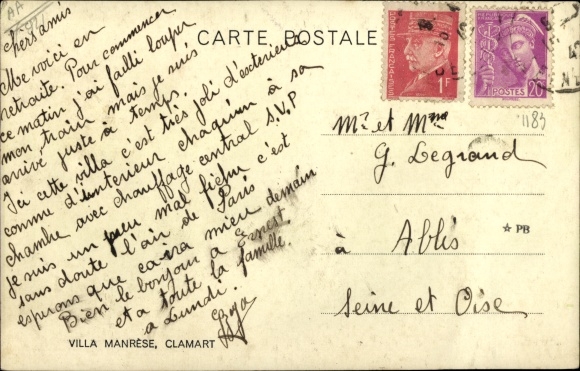 AA
CARTE POSTALE
chers amis
Me voici en
retraite. Pour commencer
ce matin j'ai failli louper
mon train, mais je suis
arrivé juste à temps.
Ici cette villa c'est très joli d'exterieur
comme d'interieur chaqu'un à sa
chambre avec chauffage central S.V.P
je suis un peu mal fichu c'est
sans doute l'air de Paris
esperons que ça ira mieu demain
Bien le bonjour a Ernest
et a toute la famille.
a Lundi.
1F
POSTES
20c
1185
Mr et Mme
G. Legrand
à Ablis
Seine et Oise
PB
VILLA MANRÈSE, CLAMART